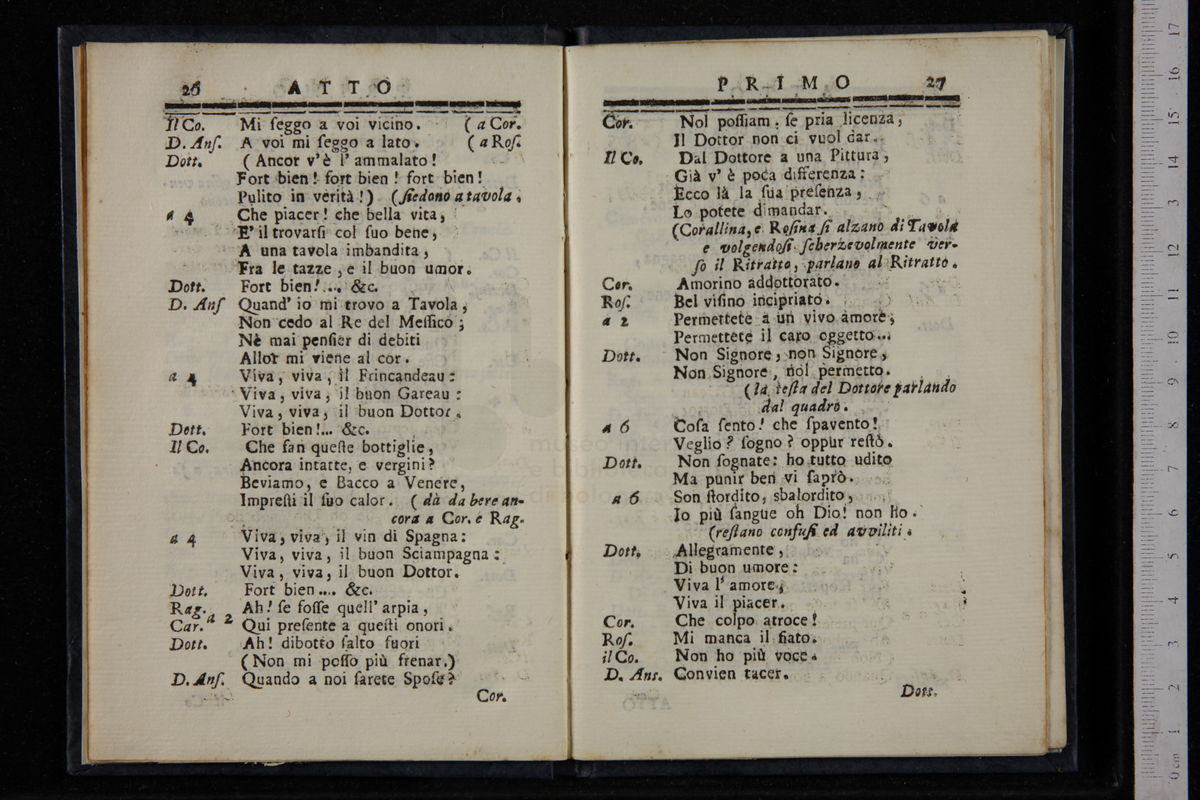 26 ATTO
Il Co. Mi ſeggo a voi vicino. (a Cor.
D. Anſ. A voi mi ſeggo a lato. (a Roſ.
Dott. (Ancor v'è l'ammalato!
Fort bien! fort bien! fort bien!
Pulito in verità!) (ſiedono a tavola.
a 4 Che piacer! che bella vita,
E' il trovarſi col ſuo bene,
A una tavola imbandita,
Fra le tazze, e il buon umor.
Dott. Fort bien!... &c.
D. Anſ Quand' io mi trovo a Tavola,
Non cedo al Re del Meſſico;
Nè mai penſier di debiti
Allor mi viene al cor.
a 4 Viva, viva, il Frincandeau:
Viva, viva, il buon Gareau:
Viva, viva, il buon Dottor.
Dott. Fort bien!... &c.
Il Co. Che fan queſte bottiglie,
Ancora intatte, e vergini?
Beviamo, e Bacco a Venere,
Impreſti il ſuo calor. (dà da bere an-
cora a Cor. e Rag.
a 4 Viva, viva, il vin di Spagna:
Viva, viva, il buon Sciampagna:
Viva, viva, il buon Dottor.
Dott. Fort bien.... &c.
Rag. Ah! ſe foſſe quell' arpia,
Car. a 2 Qui preſente a queſti onori.
Dott. Ah! dibotto ſalto fuori
(Non mi poſſo più frenar.)
D. Anſ. Quando a noi ſarete Spoſe?
Cor.
PRIMO 27
Cor. Nol poſſiam, ſe pria licenza,
Il Dottor non ci vuol dar.
Il Co. Dal Dottore a una Pittura,
Già v' è poca differenza:
Ecco là la ſua preſenza,
Lo potete dimandar.
(Corallina, e Roſina ſi alzano di Tavola
e volgendoſi ſcherzevolmente ver-
ſo il Ritratto, parlano al Ritratto.
Cor. Amorino addottorato.
Roſ. Bel viſino incipriato.
a 2 Permettete a un vivo amore,
Permettete il caro oggetto...
Dott. Non Signore, non Signore,
Non Signore, nol permetto.
(la teſta del Dottore parlando
dal quadro.
a 6 Coſa ſento! che ſpavento!
Veglio? ſogno? oppur reſtò.
Dott. Non ſognate: ho tutto udito
Ma punir ben vi ſaprò.
a 6 Son ſtordito, sbalordito,
Io più ſangue oh Dio! non ho.
(reſtano confuſi ed avviliti.
Dott. Allegramente,
Di buon umore:
Viva l' amore,
Viva il piacer.
Cor. Che colpo atroce!
Roſ. Mi manca il fiato.
il Co. Non ho più voce.
D. Ans. Convien tacer.
Dott.